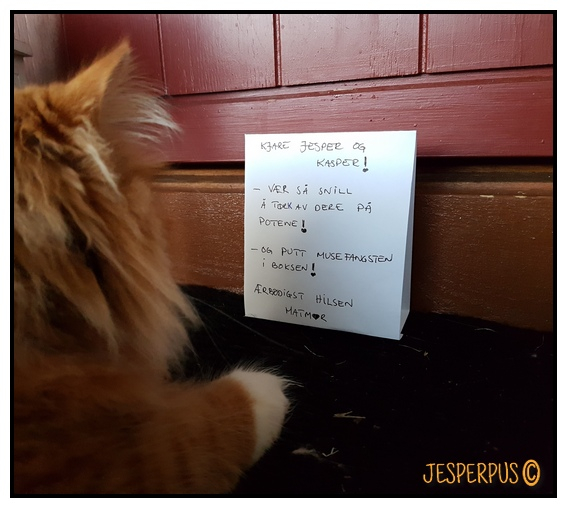 KJÆRE JESPER OG
KASPER!
- VÆR SÅ SNILL
Å TØRK AV DERE PÅ
POTENE!
- OG PUTT MUSEFANGSTEN
I BOKSEN!
ÆRBØDIGST HILSEN
MATM♥R
JESPERPUS ©